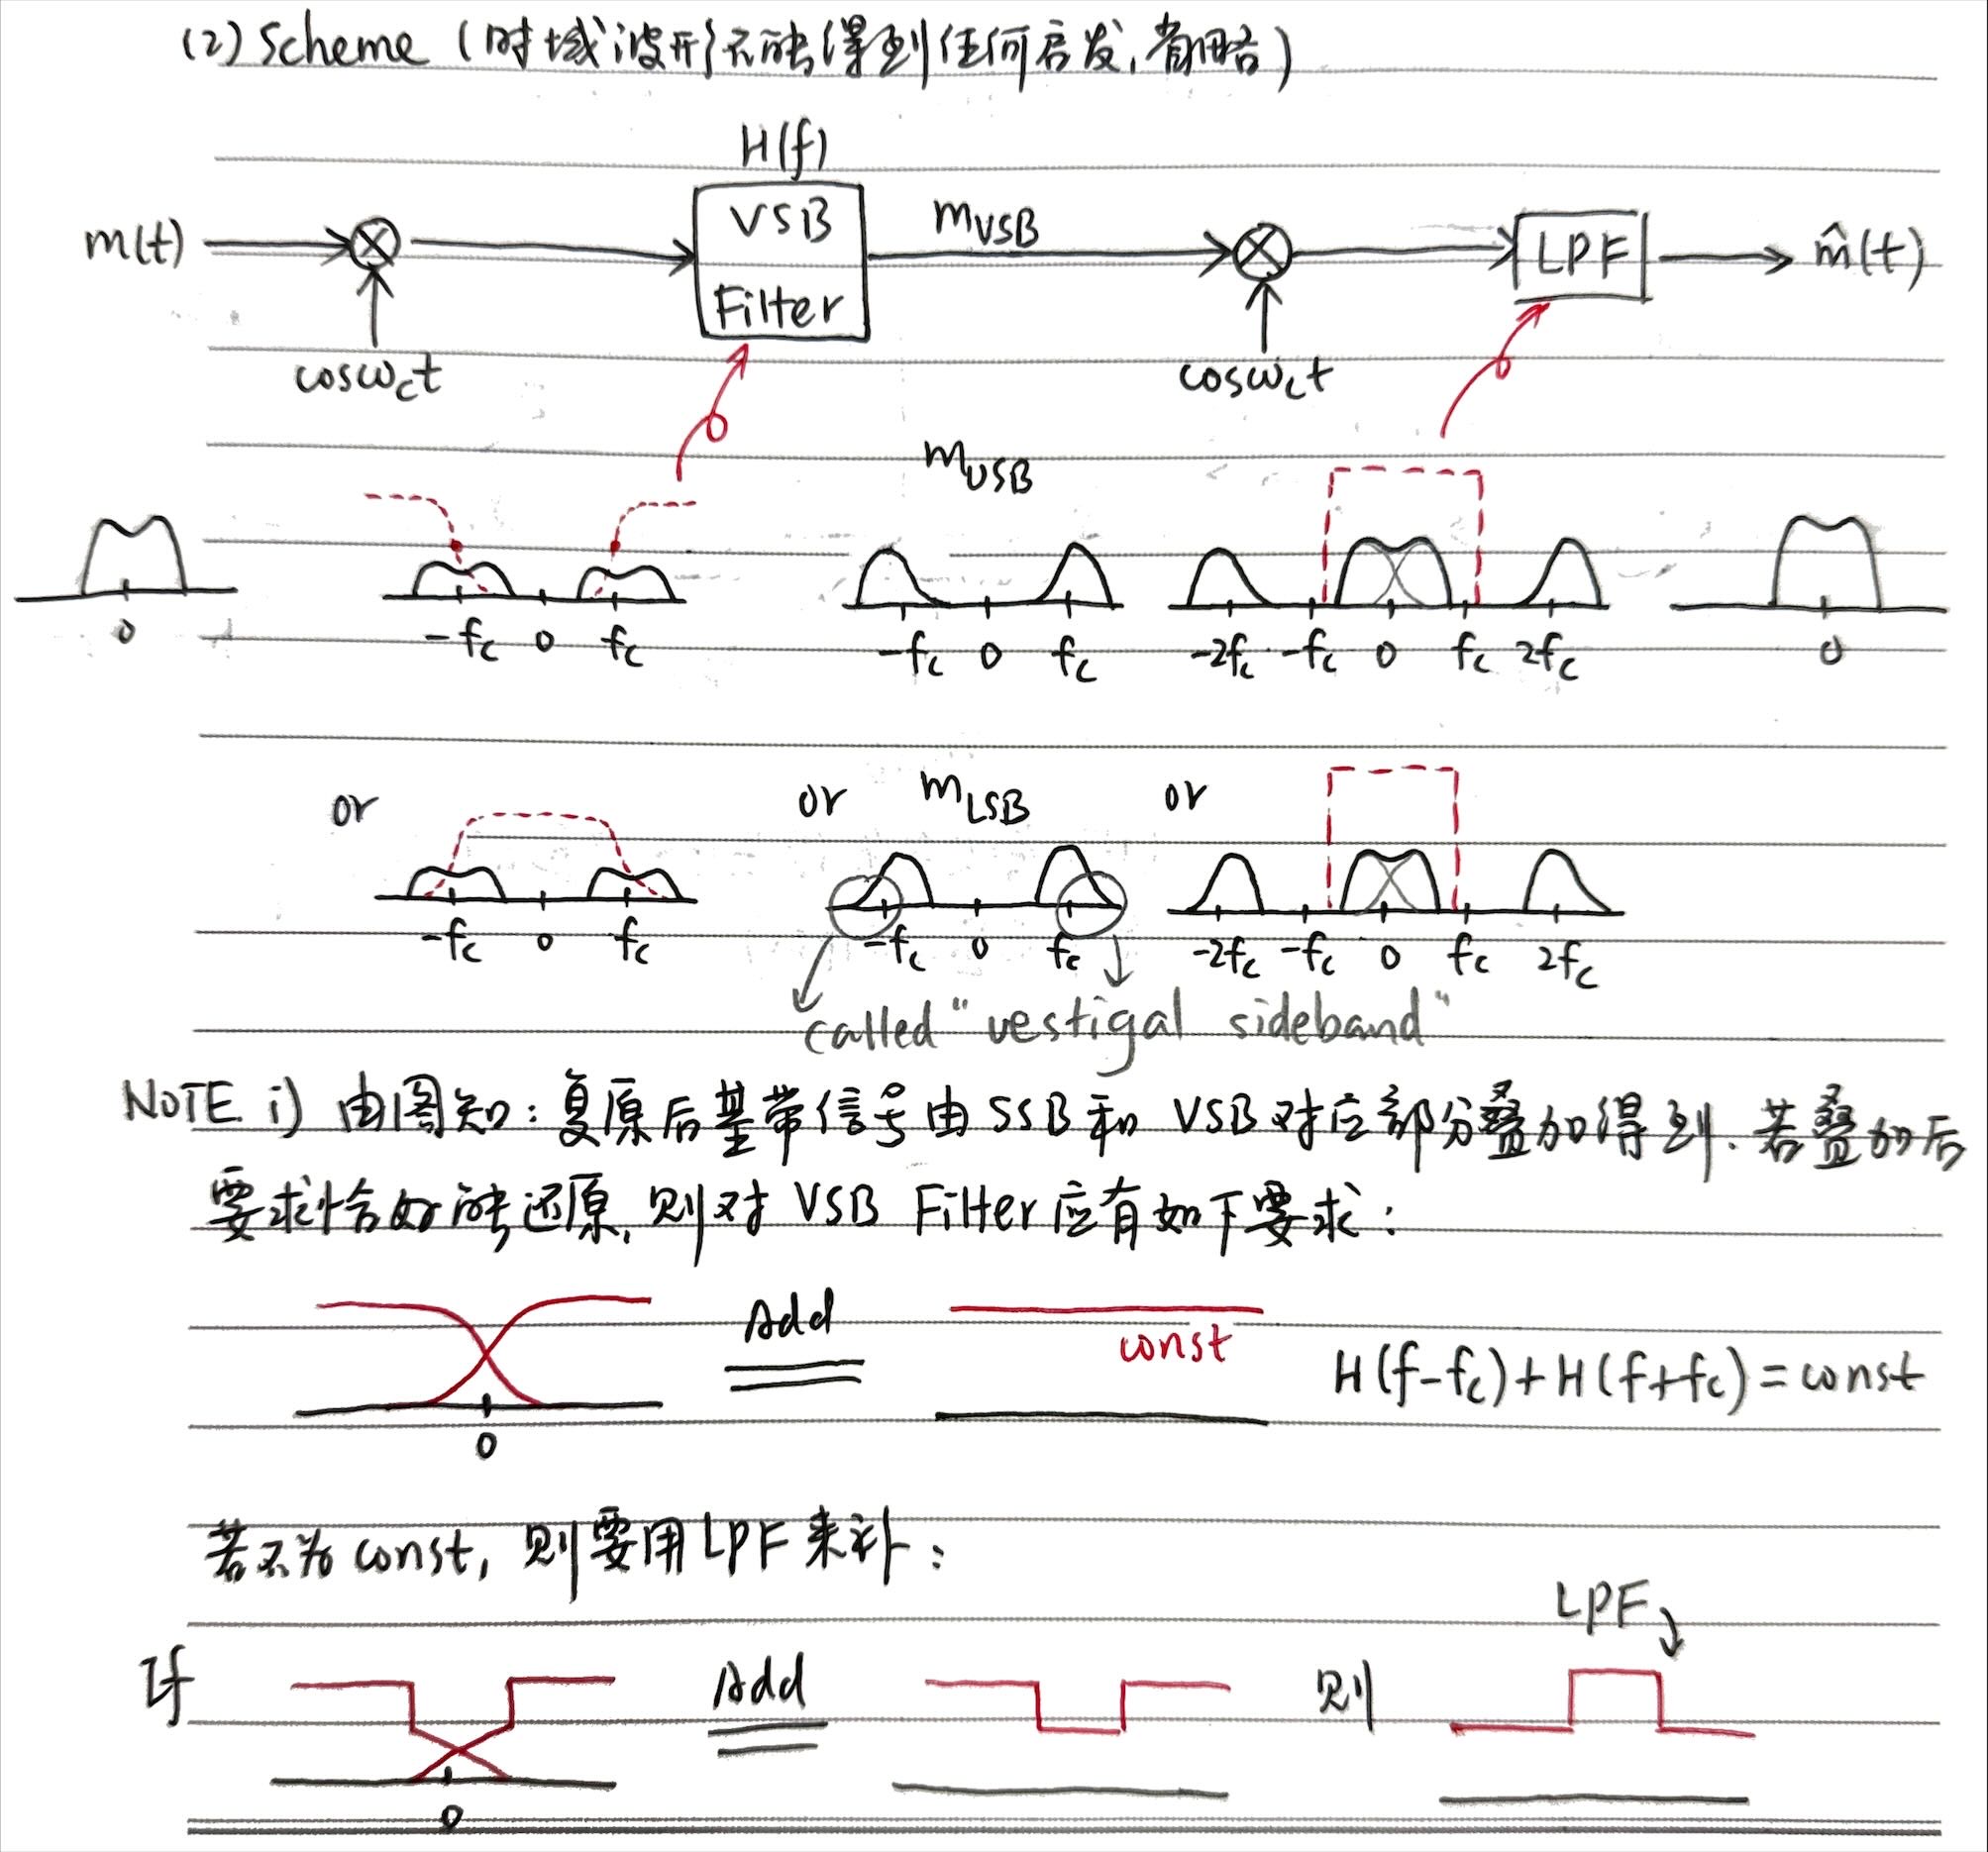 (2) Scheme (时域波形不能得到任何启发,省略)
H(f)
m(t) VSB Filter mVSB LPF m̂(t)
cosωct cosωct
mUSB
0 -fc 0 fc -fc 0 fc -2fc -fc 0 fc 2fc 0
or or mLSB or
-fc 0 fc -fc 0 fc -2fc -fc 0 fc 2fc
called "vestigal sideband"
NOTE i) 由图知:复原后基带信号由SSB和 VSB对应部分叠加得到.若叠加后
要求恰好能还原,则对 VSB Filter应有如下要求:
Add const H(f-fc)+H(f+fc)=const
0
若不为const,则要用LPF来补:
LPF
If Add 则
0